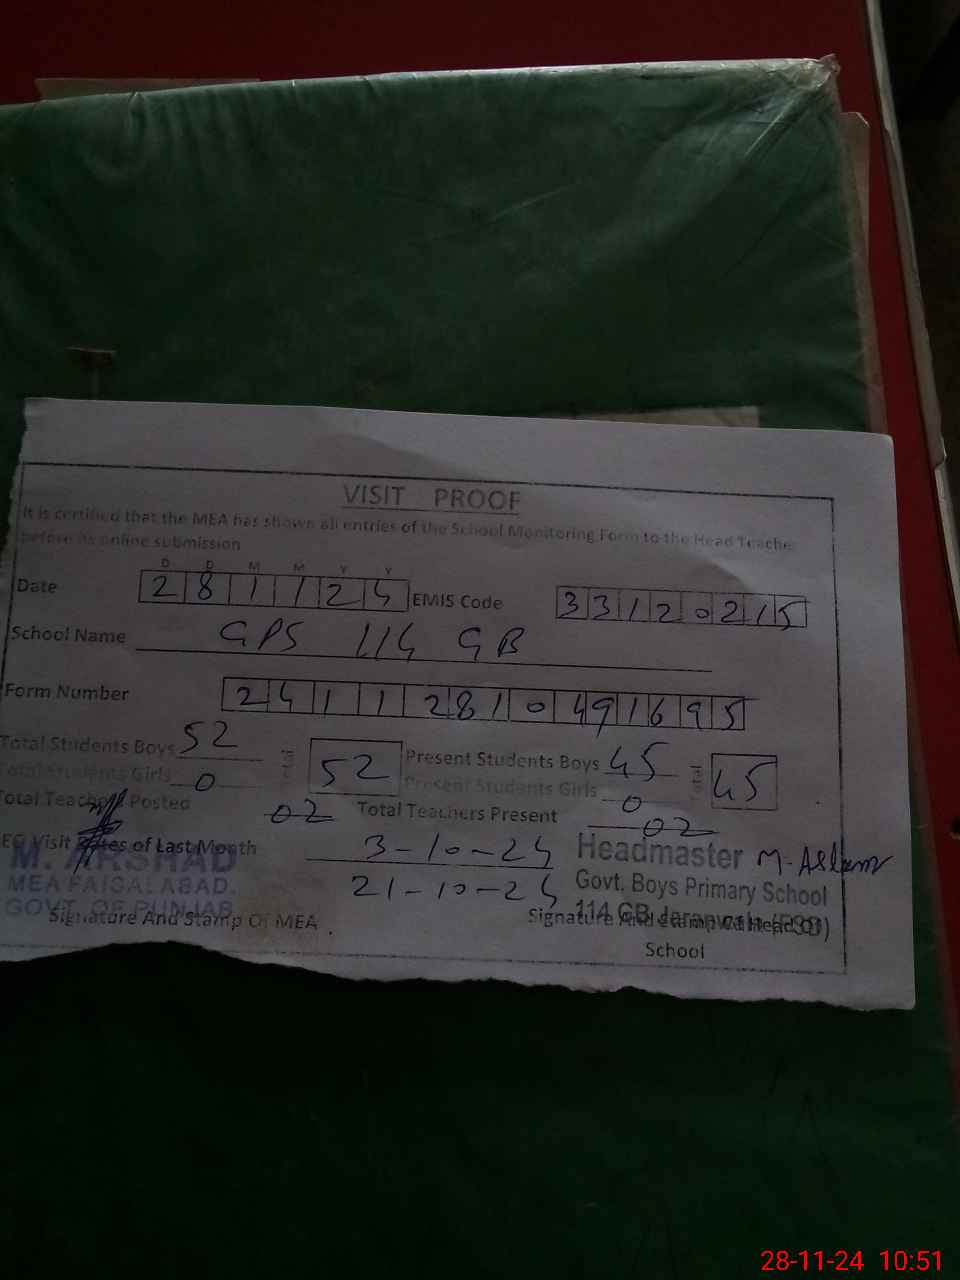 VISIT PROOF
It is certified that the MEA has shown all entries of the School Monitoring Form to the Head Teacher
before its online submission
D D M M Y Y
Date 281124 EMIS Code 33120215
School Name GPS 114 GB
Form Number 24112810491695
Total Students Boys 52 Total 52 Present Students Boys 45 Total 45
Total Students Girls 0 Present Students Girls 0
Total Teachers Posted 02 Total Teachers Present 02
Visit Dates of Last Month 3-10-24
21-10-24
M. ARSHAD
MEA FAISALABAD.
GOVT. OF PUNJAB
Signature And Stamp Of MEA
Headmaster M. Aslam
Govt. Boys Primary School
114 GB Jaranwala (FSD)
Signature And Stamp Of Head Of
School
28-11-24 10:51